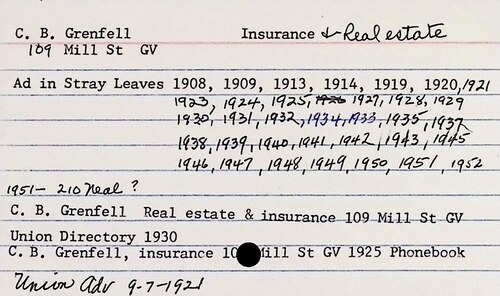 C. B. Grenfell Insurance & Real estate
109 Mill St GV
Ad in Stray Leaves 1908, 1909, 1913, 1914, 1919, 1920, 1921
1923, 1924, 1925, 1926 1927, 1928, 1929
1930, 1931, 1932, 1934, 1933, 1935, 1937
1938, 1939, 1940, 1941, 1942, 1943, 1945
1946, 1947, 1948, 1949, 1950, 1951, 1952
1951- 210 Neal ?
C. B. Grenfell Real estate & insurance 109 Mill St GV
Union Directory 1930
C. B. Grenfell, insurance Mill St GV 1925 Phonebook
Union Adv 9-7-1921